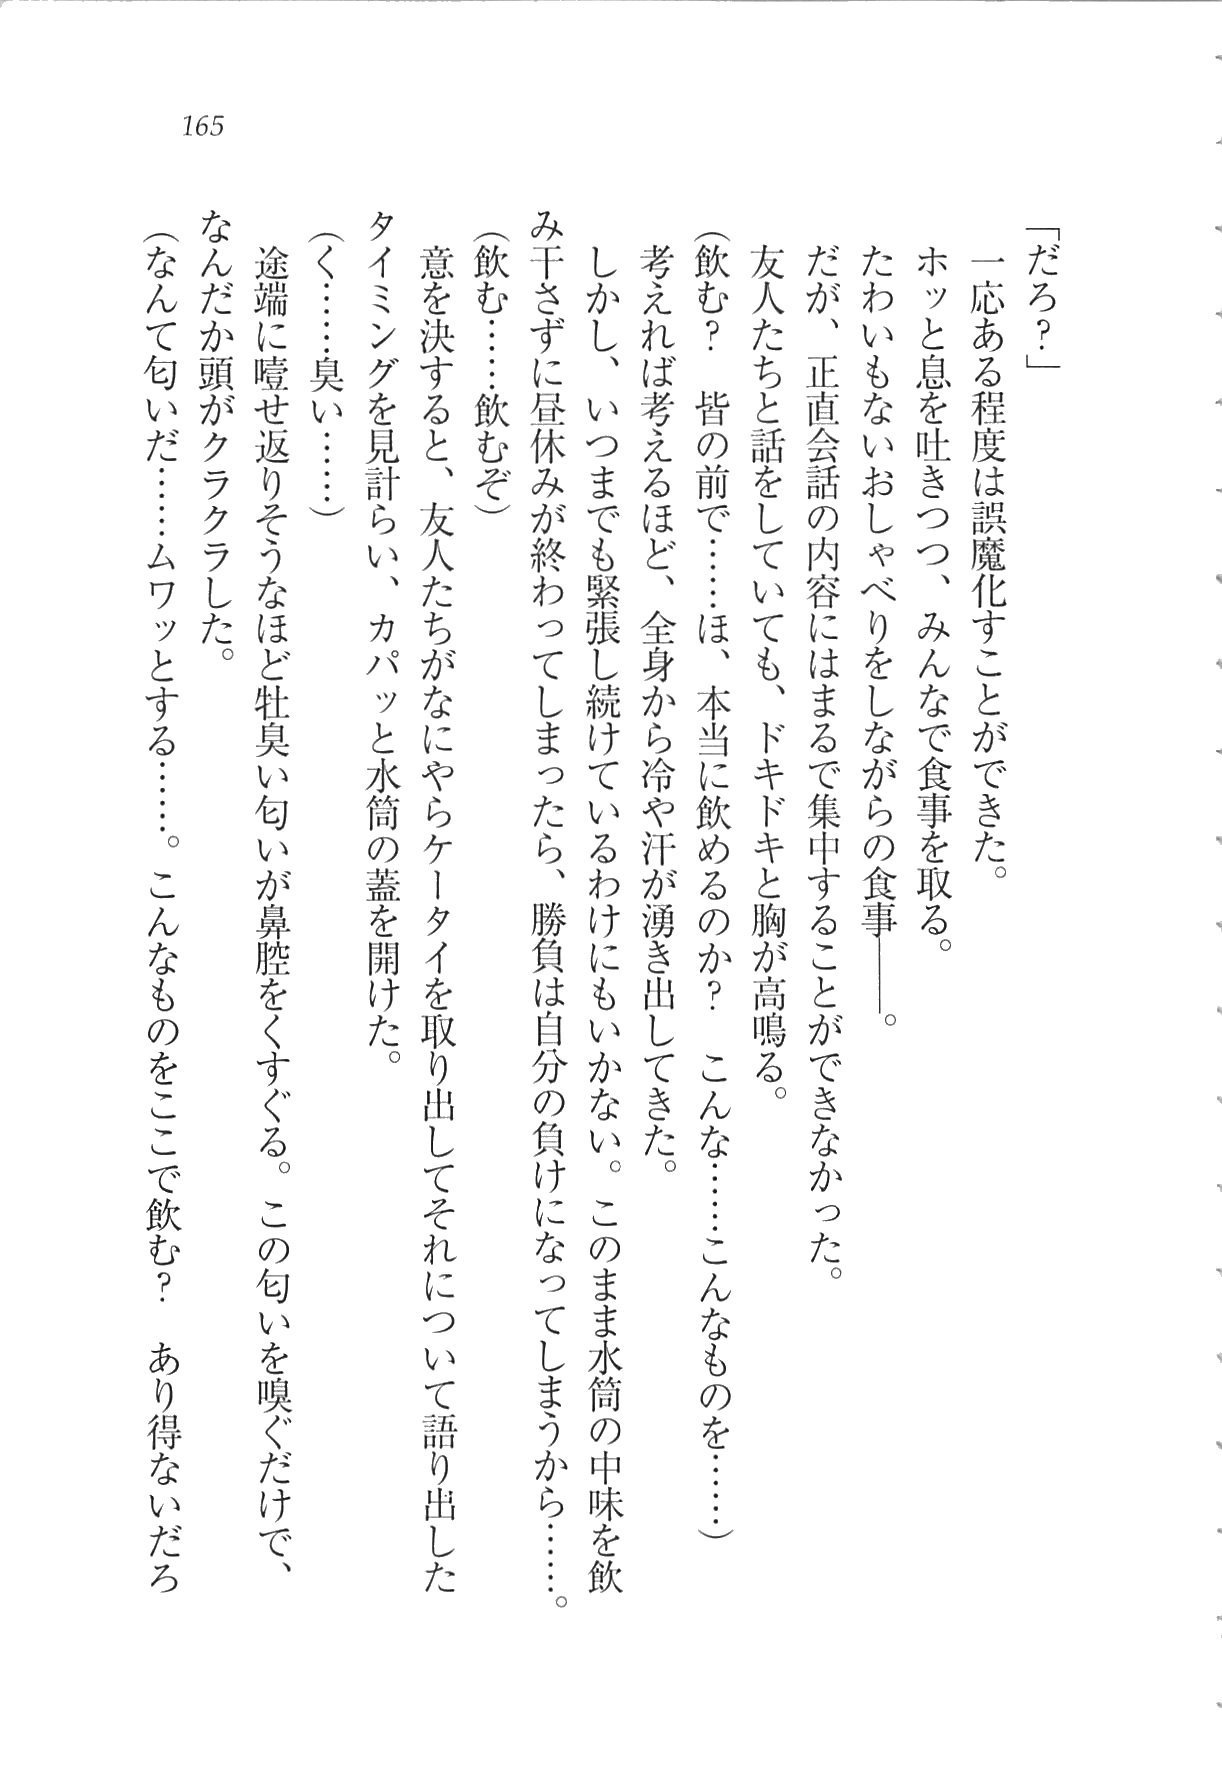 165
「だろ？」
一応ある程度は誤魔化すことができた。
ホッと息を吐きつつ、みんなで食事を取る。
たわいもないおしゃべりをしながらの食事――。
だが、正直会話の内容にはまるで集中することができなかった。
友人たちと話をしていても、ドキドキと胸が高鳴る。
（飲む？　皆の前で……ほ、本当に飲めるのか？　こんな……こんなものを……）
考えれば考えるほど、全身から冷や汗が湧き出してきた。
しかし、いつまでも緊張し続けているわけにもいかない。このまま水筒の中味を飲
み干さずに昼休みが終わってしまったら、勝負は自分の負けになってしまうから……。
（飲む……飲むぞ）
意を決すると、友人たちがなにやらケータイを取り出してそれについて語り出した
タイミングを見計らい、カパッと水筒の蓋を開けた。
（く……臭い……）
途端に噎せ返りそうなほど牡臭い匂いが鼻腔をくすぐる。この匂いを嗅ぐだけで、
なんだか頭がクラクラした。
（なんて匂いだ……ムワッとする……。こんなものをここで飲む？　あり得ないだろ